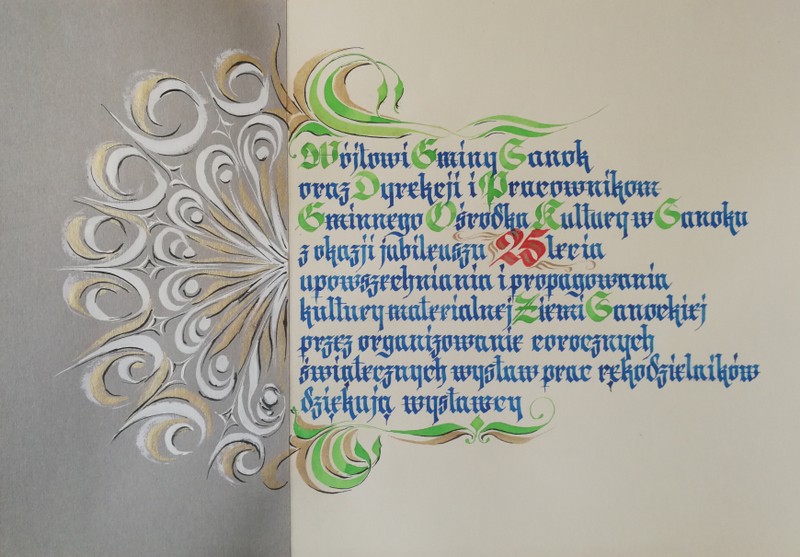 Wójtowi Gminy Sanok
oraz Dyrekcji i Pracownikom
Gminnego Ośrodka Kultury w Sanoku
z okazji jubileuszu 25lecia
upowszechniania i propagowania
kultury materialnej Ziemi Sanockiej
przez organizowanie corocznych
świątecznych wystaw prac rękodzielników
dziękują wystawcy